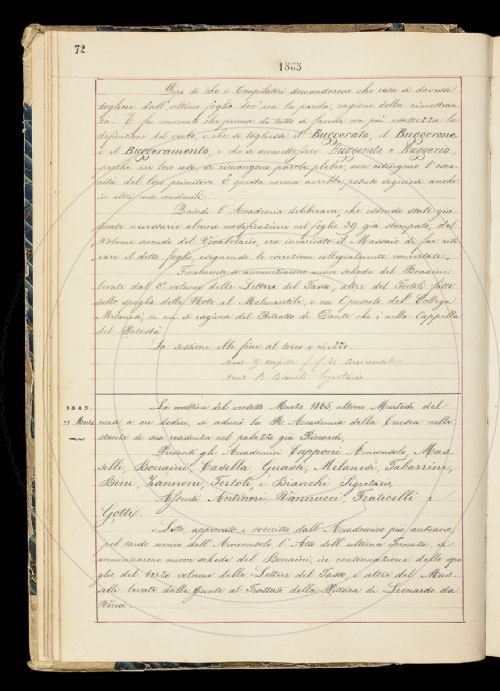 72
1865
Dopo di che i Compilatori domandarono che cosa si dovesse
togliere dall'ultimo foglio dov'era la parola, cagione della rimostran
za. E fu convenuto che prima di tutto si facesse con più castità la
definizione del verbo, e che si togliesse il Buggerato, il Buggerone
e il Buggeramento, e che si ammettessero Buggerata e Buggerio,
perchè nel loro uso, se rimangono parole plebee, non ritengono l'osce
nità del loro primitivo. E questa norma avrebbe potuto seguirsi anche
in altri casi consimili.
Quindi l'Accademia deliberava, che essendo stati giu
dicate necessarie alcune modificazioni nel foglio 39 già stampato, del
Volume secondo del Vocabolario, era incaricato il Massaio di far riti
rare il detto foglio eseguendo le correzioni collegialmente concertate.
Finalmente si annunziarono nuove schede del Bonaini
levate dal 3º volume delle Lettere del Tasso, altre del Tortoli fatte
sullo spoglio delle Note al Malmantile, e un Opuscolo del Collega
Milanesi, in cui si ragiona del Ritratto di Dante che è nella Cappella
del Potestà.
La sessione ebbe fine al tocco e mezzo
f. f. di Arciconsolo
B. Bianchi Segretario
1865
Marzo
La mattina del ventotto Marzo 1865, ultimo Martedì del
mese, a ore dodici, si adunò la R. Accademia della Crusca nelle
stanze di sua residenza nel palazzo già Riccardi.
Presenti gli Accademici Capponi Arciconsolo, Mas
selli, Bonaini, Casella, Guasti, Milanesi, Tabarrini,
Bini, Zannoni, Tortoli, e Bianchi Segretario,
Assenti Antinori, Vannucci, Fraticelli e
Gotti.
Letto, approvato e soscritto dall'Accademico più anziano,
pel tardo arrivo dell'Arciconsolo, l'Atto dell'ultima Tornata si
annunziarono nuove schede del Bonaini, in continuazione dello spo
glio del terzo volume delle Lettere del Tasso, e altre del Mas
selli levate dalle Giunte al Trattato della Pittura di Leonardo da
Vinci.